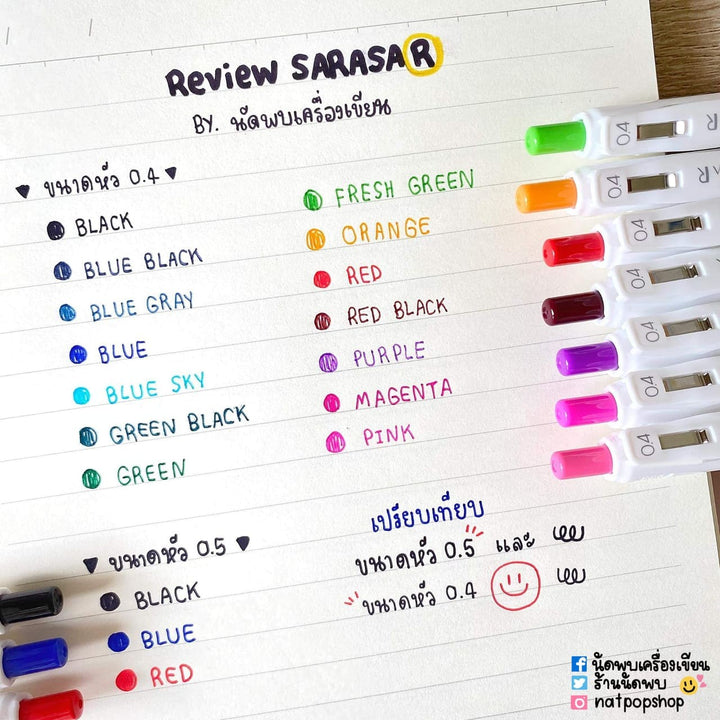 Review SARASA R
BY. นัดพบเครื่องเขียน
▼ ขนาดหัว 0.4 ▼
BLACK
BLUE BLACK
BLUE GRAY
BLUE
BLUE SKY
GREEN BLACK
GREEN
FRESH GREEN
ORANGE
RED
RED BLACK
PURPLE
MAGENTA
PINK
0.4
0.4
0.4
0.4
0.4
0.4
0.4
▼ ขนาดหัว 0.5 ▼
BLACK
BLUE
RED
เปรียบเทียบ
ขนาดหัว 0.5 และ
ขนาดหัว 0.4
นัดพบเครื่องเขียน
ร้านนัดพบ
natpopshop